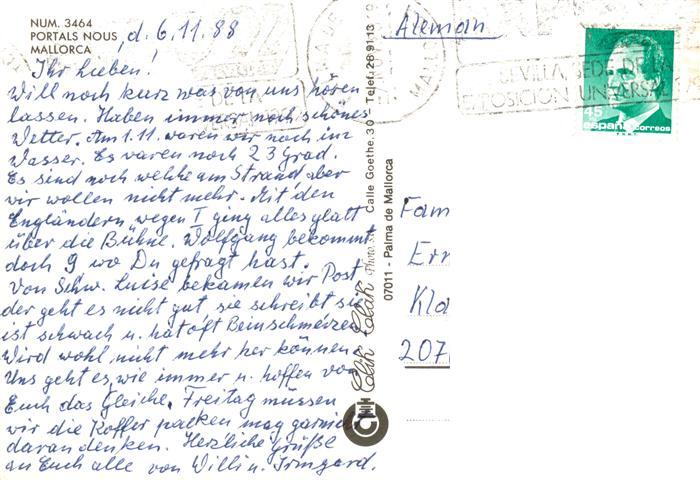 NUM. 3464
PORTALS NOUS
MALLORCA
, d. 6.11.88
Ihr Lieben!
Will noch kurz was von uns hören
lassen. Haben immer noch schönes
Wetter. Am 1.11. waren wir noch im
Wasser. Es waren noch 23 Grad.
Es sind noch welche am Strand, aber
wir wollen nicht mehr. Mit den
Engländern wegen T ging alles glatt
über die Bühne. Wolfgang bekommt
doch 9 wo Du gefragt hast.
Von Schw. Luise bekamen wir Post
der geht es nicht gut, sie schreibt sie
ist schwach u. hat oft Beinschmerzen
Wird wohl nicht mehr her können.
Uns geht es, wie immer u. hoffen von
Euch das Gleiche. Freitag müssen
wir die Koffer packen mag garnicht
daran denken. Herzliche Grüße
an Euch alle von Willi u. Irmgard.
Clik Clak Photo Calle Goethe, 30 - Telef. 28 91 13
07011 - Palma de Mallorca
Aleman
SEVILLA, SEDE DE LA
EXPOSICION UNIVERSAL
DE LA
45
españa correos
Fam
Ern
Kla
207